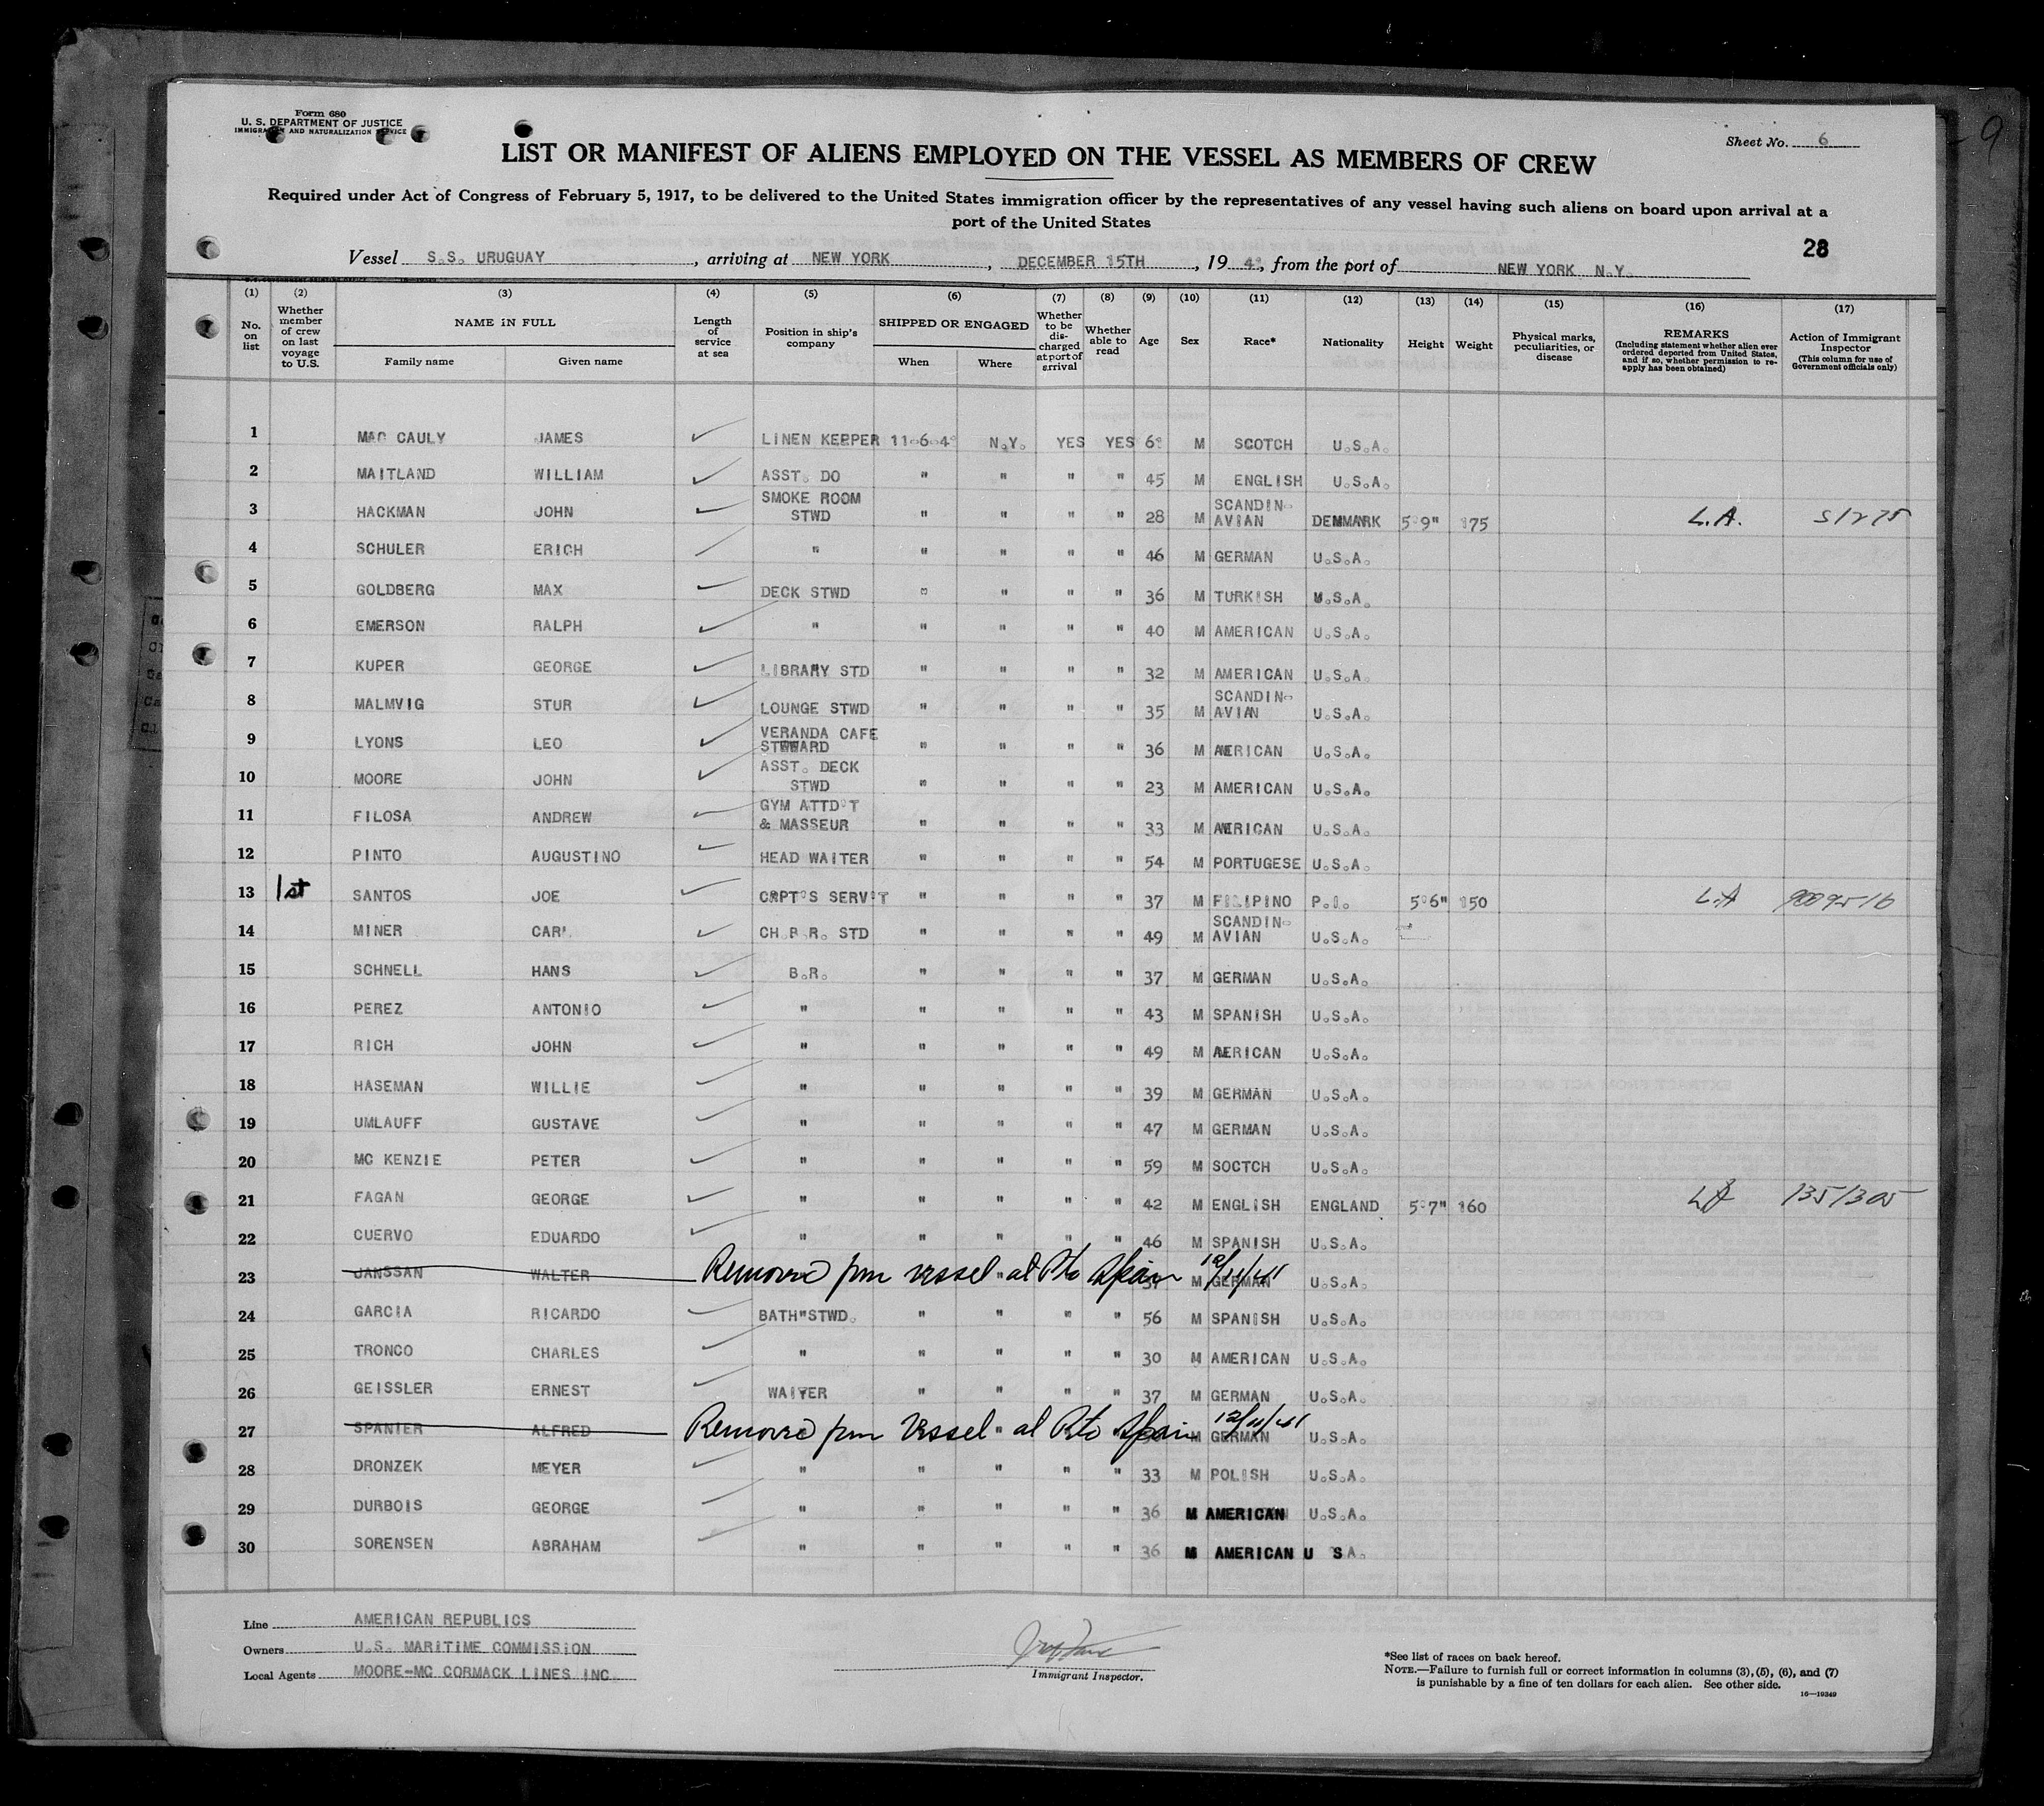 Form 680
U. S. DEPARTMENT OF JUSTICE
IMMIGRATION AND NATURALIZATION SERVICE
Sheet No. 6
LIST OR MANIFEST OF ALIENS EMPLOYED ON THE VESSEL AS MEMBERS OF CREW
Required under Act of Congress of February 5, 1917, to be delivered to the United States immigration officer by the representatives of any vessel having such aliens on board upon arrival at a
port of the United States
28
Vessel S.S. URUGUAY, arriving at NEW YORK, DECEMBER 15TH, 1941, from the port of NEW YORK N.Y.
(1) No. on list
(2) Whether member of crew on last voyage to U.S.
(3) NAME IN FULL Family name Given name
(4) Length of service at sea
(5) Position in ship's company
(6) SHIPPED OR ENGAGED When Where
(7) Whether to be discharged at port of arrival
(8) Whether able to read
(9) Age
(10) Sex
(11) Race*
(12) Nationality
(13) Height
(14) Weight
(15) Physical marks, peculiarities, or disease
(16) REMARKS (Including statement whether alien ever ordered deported from United States, and if so, whether permission to reapply has been obtained)
(17) Action of Immigrant Inspector (This column for use of Government officials only)
1 MAC CAULY JAMES LINEN KEEPER 11-6-41 N.Y. YES YES 61 M SCOTCH U.S.A.
2 MAITLAND WILLIAM ASST. DO " " " " 45 M ENGLISH U.S.A.
3 HACKMAN JOHN SMOKE ROOM STWD " " " " 28 M SCANDINAVIAN DENMARK 5'9" 175 L.A. 51275
4 SCHULER ERICH " " " " " 46 M GERMAN U.S.A.
5 GOLDBERG MAX DECK STWD " " " " 36 M TURKISH U.S.A.
6 EMERSON RALPH " " " " " 40 M AMERICAN U.S.A.
7 KUPER GEORGE LIBRARY STD " " " " 32 M AMERICAN U.S.A.
8 MALMVIG STUR LOUNGE STWD " " " " 35 M SCANDINAVIAN U.S.A.
9 LYONS LEO VERANDA CAFE STEWARD " " " " 36 M AMERICAN U.S.A.
10 MOORE JOHN ASST. DECK STWD " " " " 23 M AMERICAN U.S.A.
11 FILOSA ANDREW GYM ATTD'T & MASSEUR " " " " 33 M AMERICAN U.S.A.
12 PINTO AUGUSTINO HEAD WAITER " " " " 54 M PORTUGESE U.S.A.
13 1st SANTOS JOE CAPT'S SERV'T " " " " 37 M FILIPINO P.I. 5'6" 150 L.A
14 MINER CARL CH.B.R. STD " " " " 49 M SCANDINAVIAN U.S.A.
15 SCHNELL HANS B.R. " " " " 37 M GERMAN U.S.A.
16 PEREZ ANTONIO " " " " " 43 M SPANISH U.S.A.
17 RICH JOHN " " " " " 49 M AMERICAN U.S.A.
18 HASEMAN WILLIE " " " " " 39 M GERMAN U.S.A.
19 UMLAUFF GUSTAVE " " " " " 47 M GERMAN U.S.A.
20 MC KENZIE PETER " " " " " 59 M SOCTCH U.S.A.
21 FAGAN GEORGE " " " " " 42 M ENGLISH ENGLAND 5'7" 160 LA 1351305
22 CUERVO EDUARDO " " " " " 46 M SPANISH U.S.A.
23 JANSSAN WALTER Removed from vessel at Pto Spain 12/11/41 M GERMAN U.S.A.
24 GARCIA RICARDO BATH STWD. " " " " 56 M SPANISH U.S.A.
25 TRONCO CHARLES " " " " " 30 M AMERICAN U.S.A.
26 GEISSLER ERNEST WAITER " " " " 37 M GERMAN U.S.A.
27 SPANIER ALFRED Removed from vessel at Pto Spain 12/11/41 M GERMAN U.S.A.
28 DRONZEK MEYER " " " " " 33 M POLISH U.S.A.
29 DURBOIS GEORGE " " " " " 36 M AMERICAN U.S.A.
30 SORENSEN ABRAHAM " " " " " 36 M AMERICAN U SA.
Line AMERICAN REPUBLICS
Owners U.S. MARITIME COMMISSION
Local Agents MOORE-MC CORMACK LINES INC.
Immigrant Inspector.
*See list of races on back hereof.
NOTE.—Failure to furnish full or correct information in columns (3), (5), (6), and (7)
is punishable by a fine of ten dollars for each alien. See other side.
16—19349
9